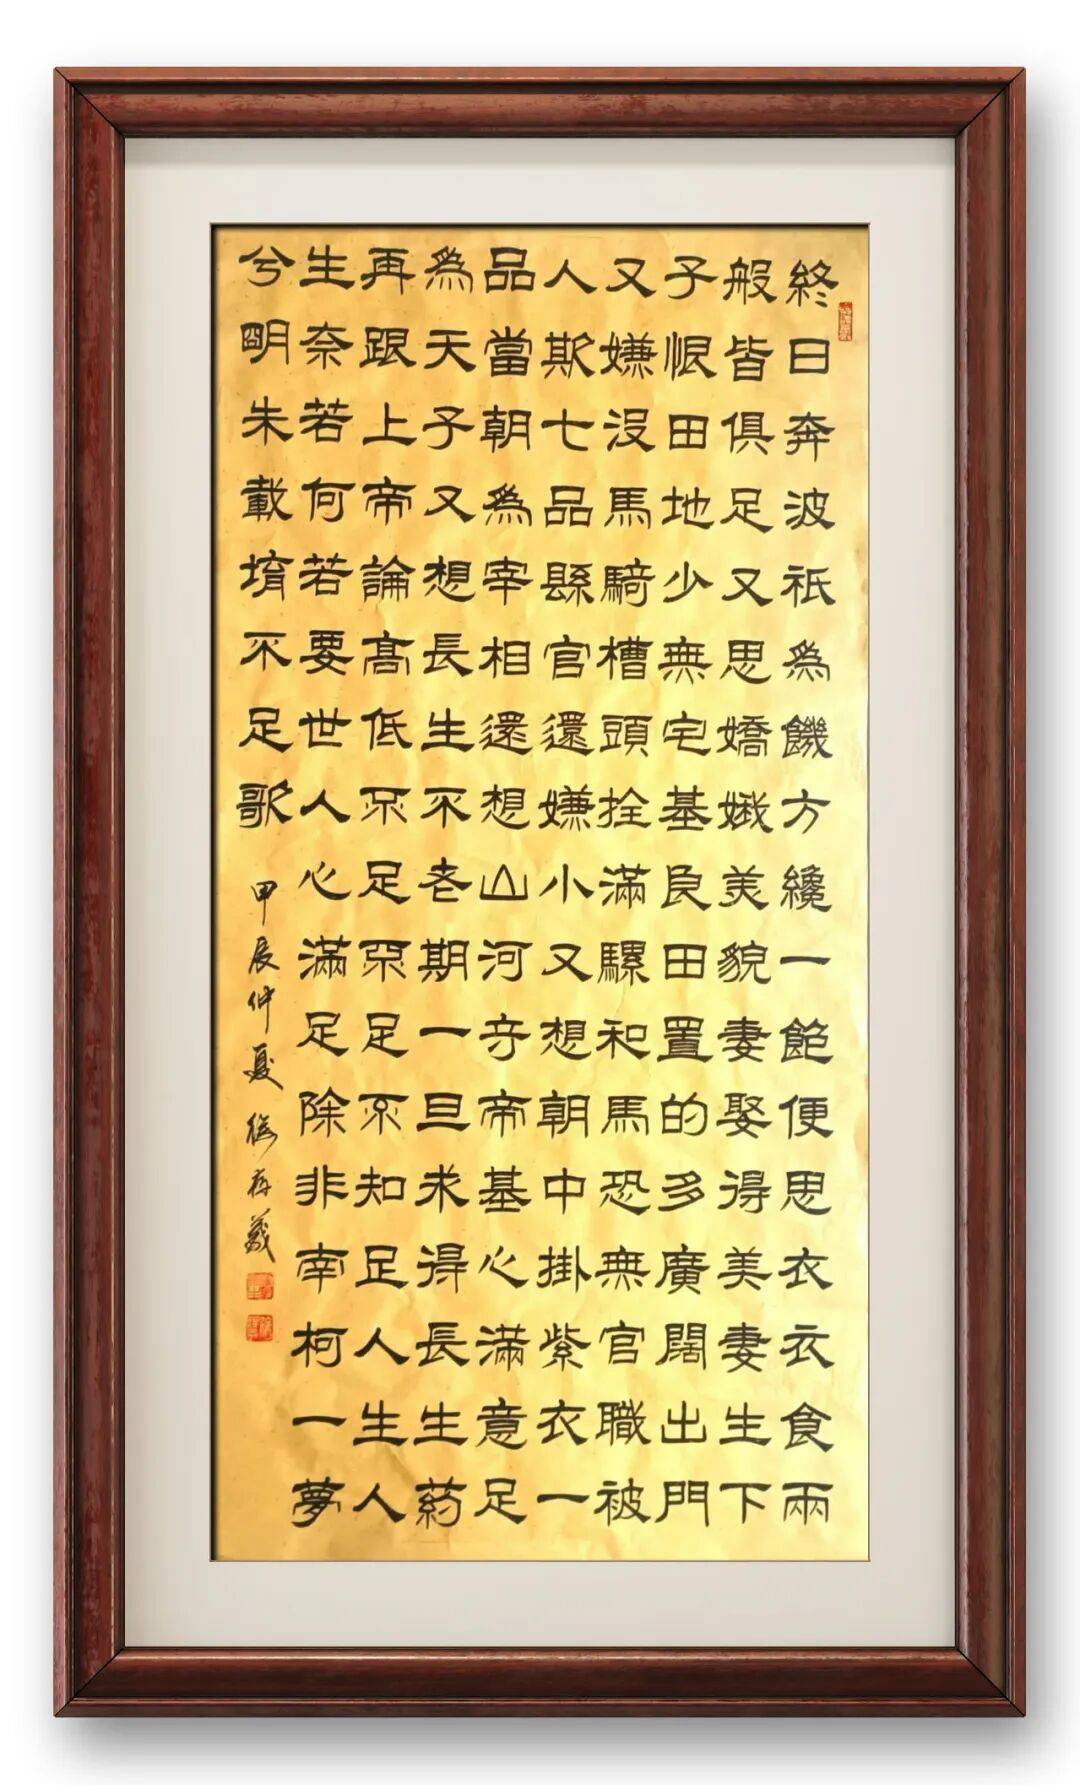 終日奔波祇為饑方纔一飽便思衣衣食兩
般皆俱足又思嬌娥美貌妻娶得美妻生下
子恨田地少無宅基良田置的多廣闊出門
又嫌沒馬騎槽頭拴滿騾和馬恐無官職被
人欺七品縣官還嫌小又想朝中掛紫衣一
品當朝為宰相還想山河夺帝基心滿意足
為天子又想長生不老期一旦求得長生药
再跟上帝論高低不足不足不知足人生人
生奈若何若要世人心滿足除非南柯一夢
兮明朱載堉不足歌
甲辰仲夏徐存義